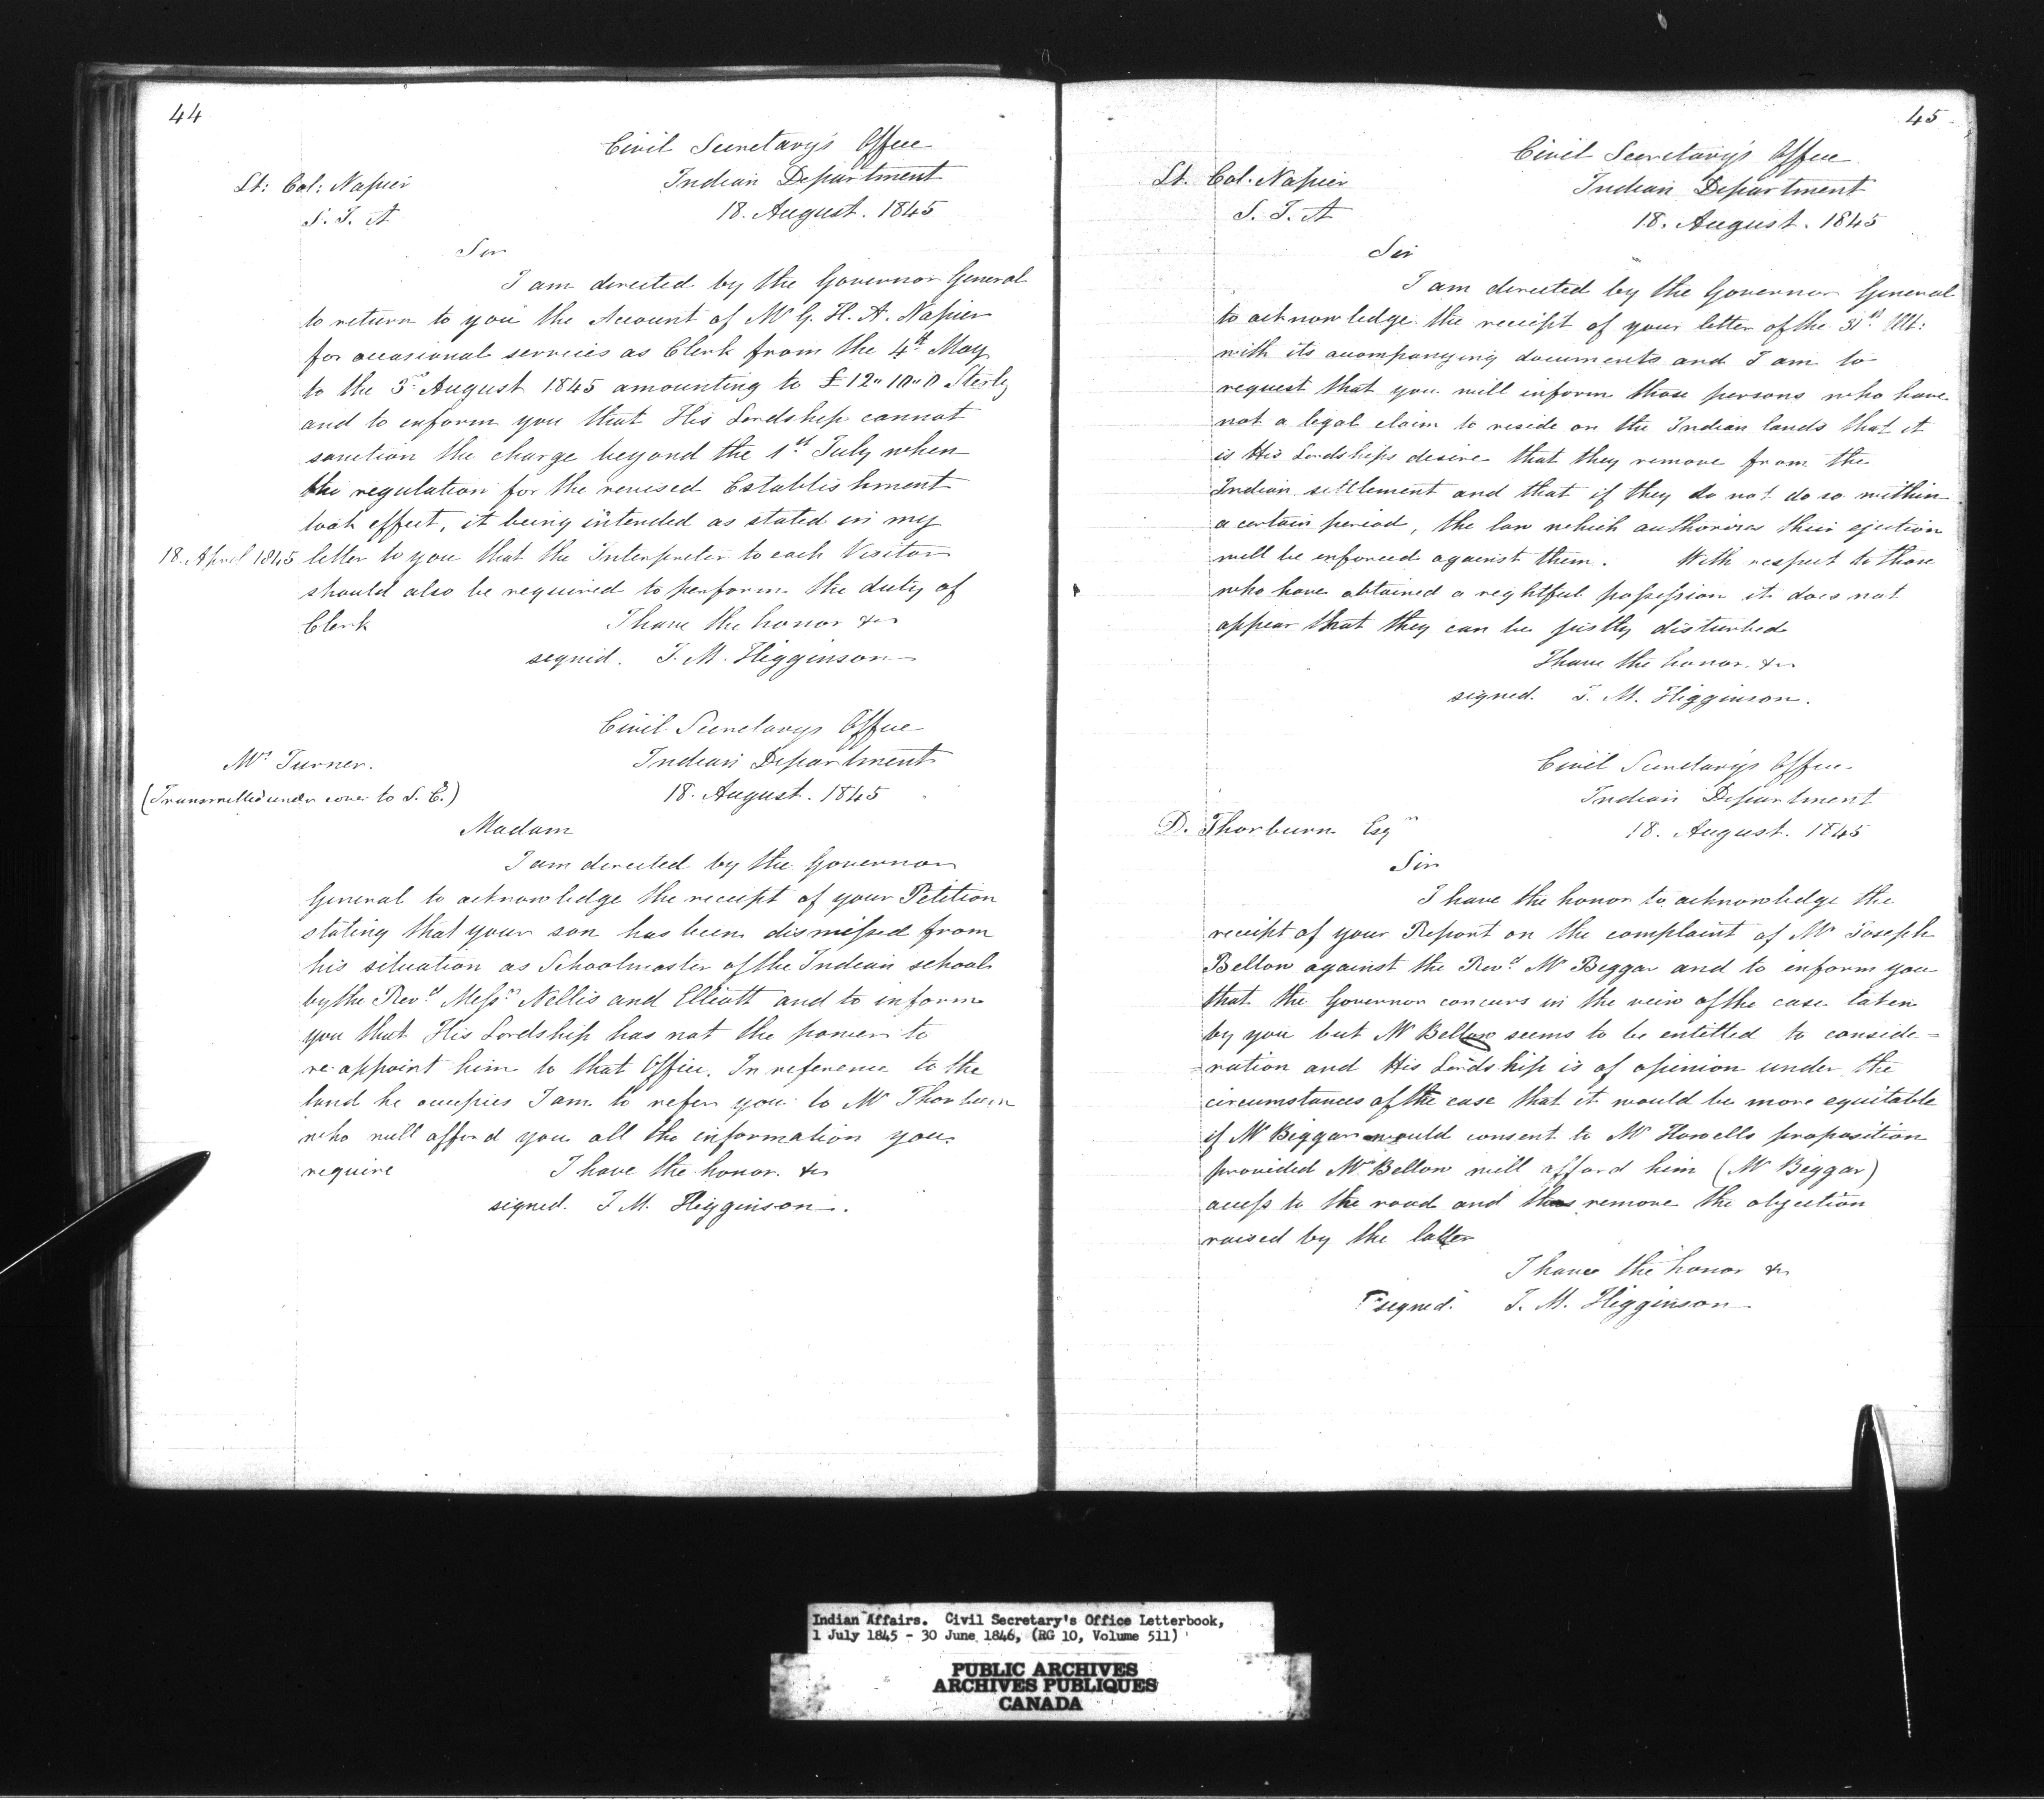 44
Civil Secretary's Office
Lt: Col: Napier
Indian Department
S. I. A
18. August. 1845
Sir
I am directed by the Governor General
to return to you the Account of Mr G. H. A. Napier
for occasional services as Clerk from the 4th May
to the 3rd August 1845 amounting to £12"10"0 Sterlg
and to inform you that His Lordship cannot
sanction the charge beyond the 1st July when
the regulation for the revised Establishment
took effect, it being intended as stated in my
18. April 1845 letter to you that the Interpreter to each Visitor
should also be required to perform the duty of
Clerk I have the honor &c
signed. J. M. Higginson
Civil Secretarys Office
Mrs Turner.
Indian Department
(Transmitted under cover to S. C.)
18. August. 1845
Madam
I am directed by the Governor
General to acknowledge the receipt of your Petition
stating that your son has been dismissed from
his situation as Schoolmaster of the Indian school
by the Revd Messrs Nellis and Elliott and to inform
you that His Lordship has not the power to
re-appoint him to that Office. In reference to the
land he occupies I am to refer you to Mr Thorburn
who will afford you all the information you
require I have the honor. &c
signed. J M. Higginson.
45
Civil Secretary's Office
Lt. Col. Napier
Indian Department
S. I. A
18. August. 1845
Sir
I am directed by the Governor General
to acknowledge the receipt of your letter of the 31st Ult:
with its accompanying documents and I am to
request that you will inform those persons who have
not a legal claim to reside on the Indian lands that it
is His Lordships desire that they remove from the
Indian settlement and that if they do not do so within
a certain period, the law which authorises their ejection
will be enforced against them. With respect to those
who have obtained a rightful possession it does not
appear that they can be justly disturbed
I have the honor. &c
signed. J. M. Higginson.
Civil Secretary's Office
Indian Department
D. Thorburn Esqr
18. August. 1845
Sir
I have the honor to acknowledge the
receipt of your Report on the complaint of Mr Joseph
Bellow against the Revd Mr Beggar and to inform you
that the Governor concurs in the veiw of the case taken
by you but Mr Bellow seems to be entitled to conside=
=ration and His Lordship is of opinion under the
circumstances of the case that it would be more equitable
if Mr Biggar would consent to Mr Howells proposition
provided Mr Bellow will afford him (Mr Biggar)
access to the road and thus remove the objection
raised by the latter
I have the honor &c
signed. J. M. Higginson
Indian Affairs. Civil Secretary's Office Letterbook,
1 July 1845 - 30 June 1846, (RG 10, Volume 511)
PUBLIC ARCHIVES
ARCHIVES PUBLIQUES
CANADA